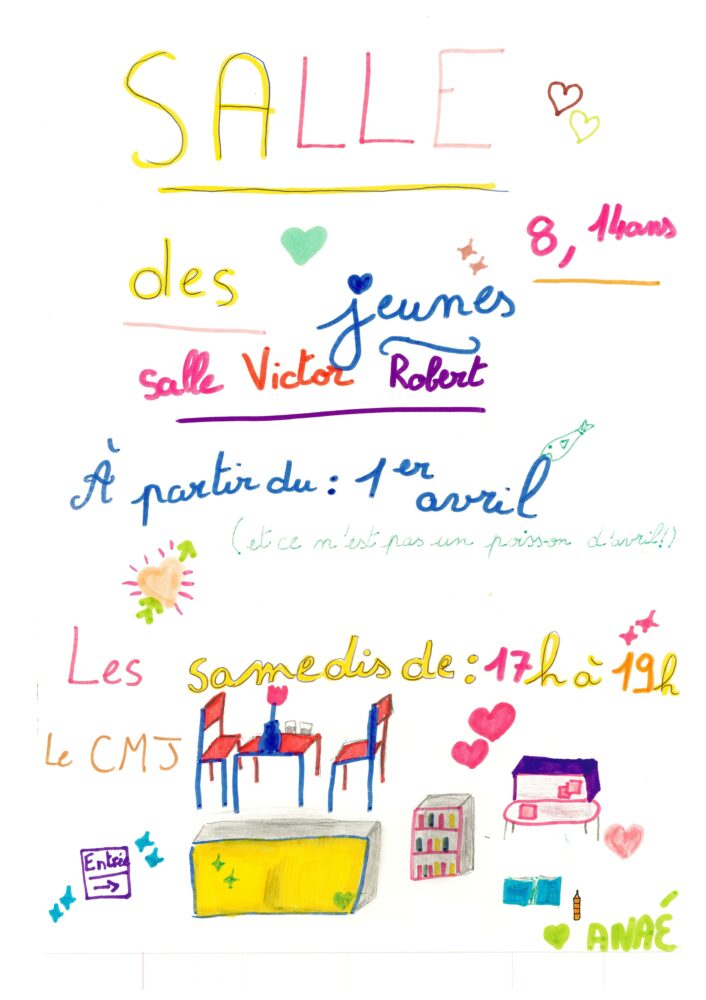 SALLE
8, 14ans
des jeunes
salle Victor Robert
À partir du : 1er avril
(et ce n'est pas un poisson d'avril!)
Les samedis de : 17h à 19h
Le CMJ
Entrée
ANAÉ